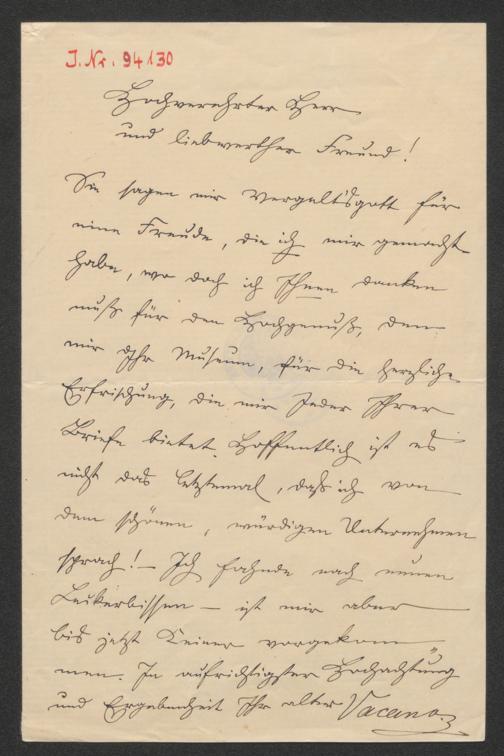 J. Nr. 94130
Hochverehrter Herr
und liebwerther Freund!
Sie sagen mir Vergelt's Gott für
eine Freude, die ich mir gemacht
habe, wo doch ich Ihnen danken
muß für den Hochgenuß, den
mir Ihr Museum, für die herzliche
Erfrischung, die mir Jeder Ihrer
Briefe bietet. Hoffentlich ist es
nicht das letztemal, daß ich von
dem schönen, würdigen Unternehmen
sprach! – Ich fahnde nach neuen
Leckerbissen – ist mir aber
bis jetzt Keiner vorgekom
men. In aufrichtigster Hochachtung
und Ergebenheit Ihr alter Vacano.